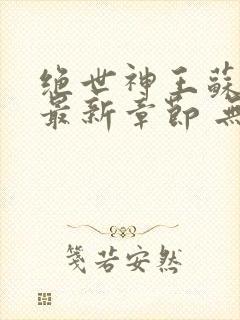 绝世神王蘇
最新章節 無
箋若安然